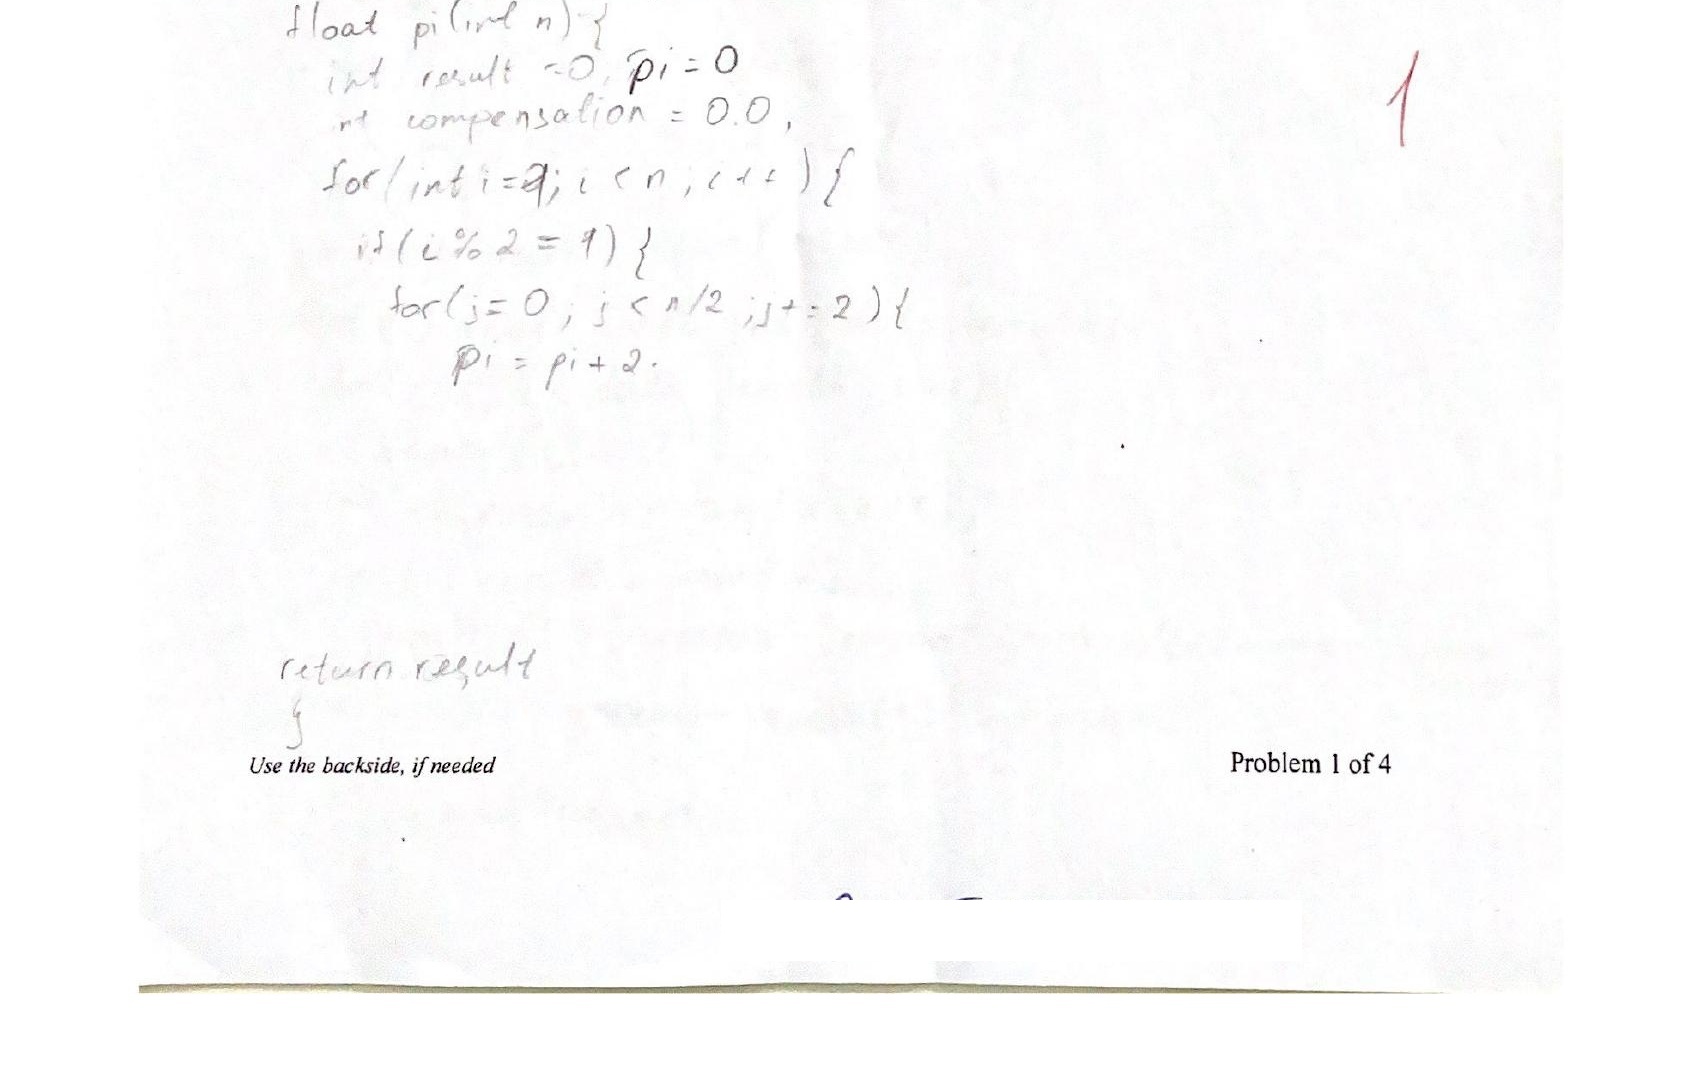 float pi(int n) {
int result = 0, pi = 0
int compensation = 0.0,
1
for(int i=1; i < n; i++) {
if(i%2 = 1) {
for(j=0; j < n/2; j+=2) {
pi = pi + 2.
return result
}
Use the backside, if needed
Problem 1 of 4